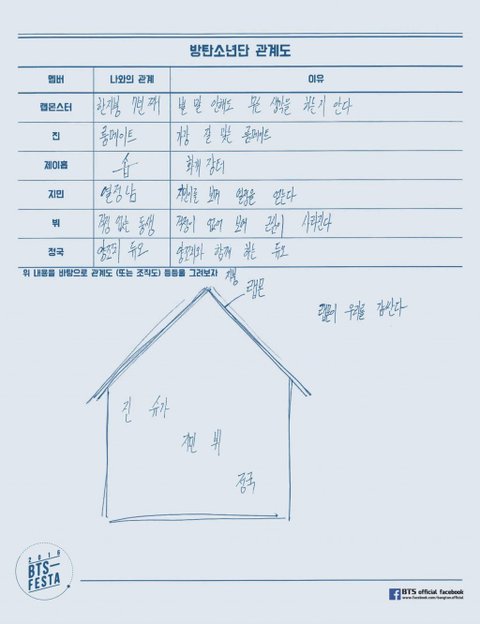 방탄소년단 관계도
멤버 나와의 관계 이유
랩몬스터 한지붕 7년 째 별 말 안해도 무슨 생각을 하는지 안다
진 룸메이트 가장 잘 맞는 룸메이트
제이홉 솝 화개 장터
지민 열정남 지민이를 보며 열정을 얻는다
뷔 걱정 없는 동생 걱정이 없어 보여 근심이 사라진다
정국 양꼬치 듀오 양꼬치와 함께 하는 듀오
위 내용을 바탕으로 관계도 (또는 조직도) 등등을 그려보자
지붕
랩몬
랩몬이 우리를 감싼다
진 슈가
지민 뷔
정국
2016
BTS
FESTA
BTS official facebook
www.facebook.com/bangtan.official